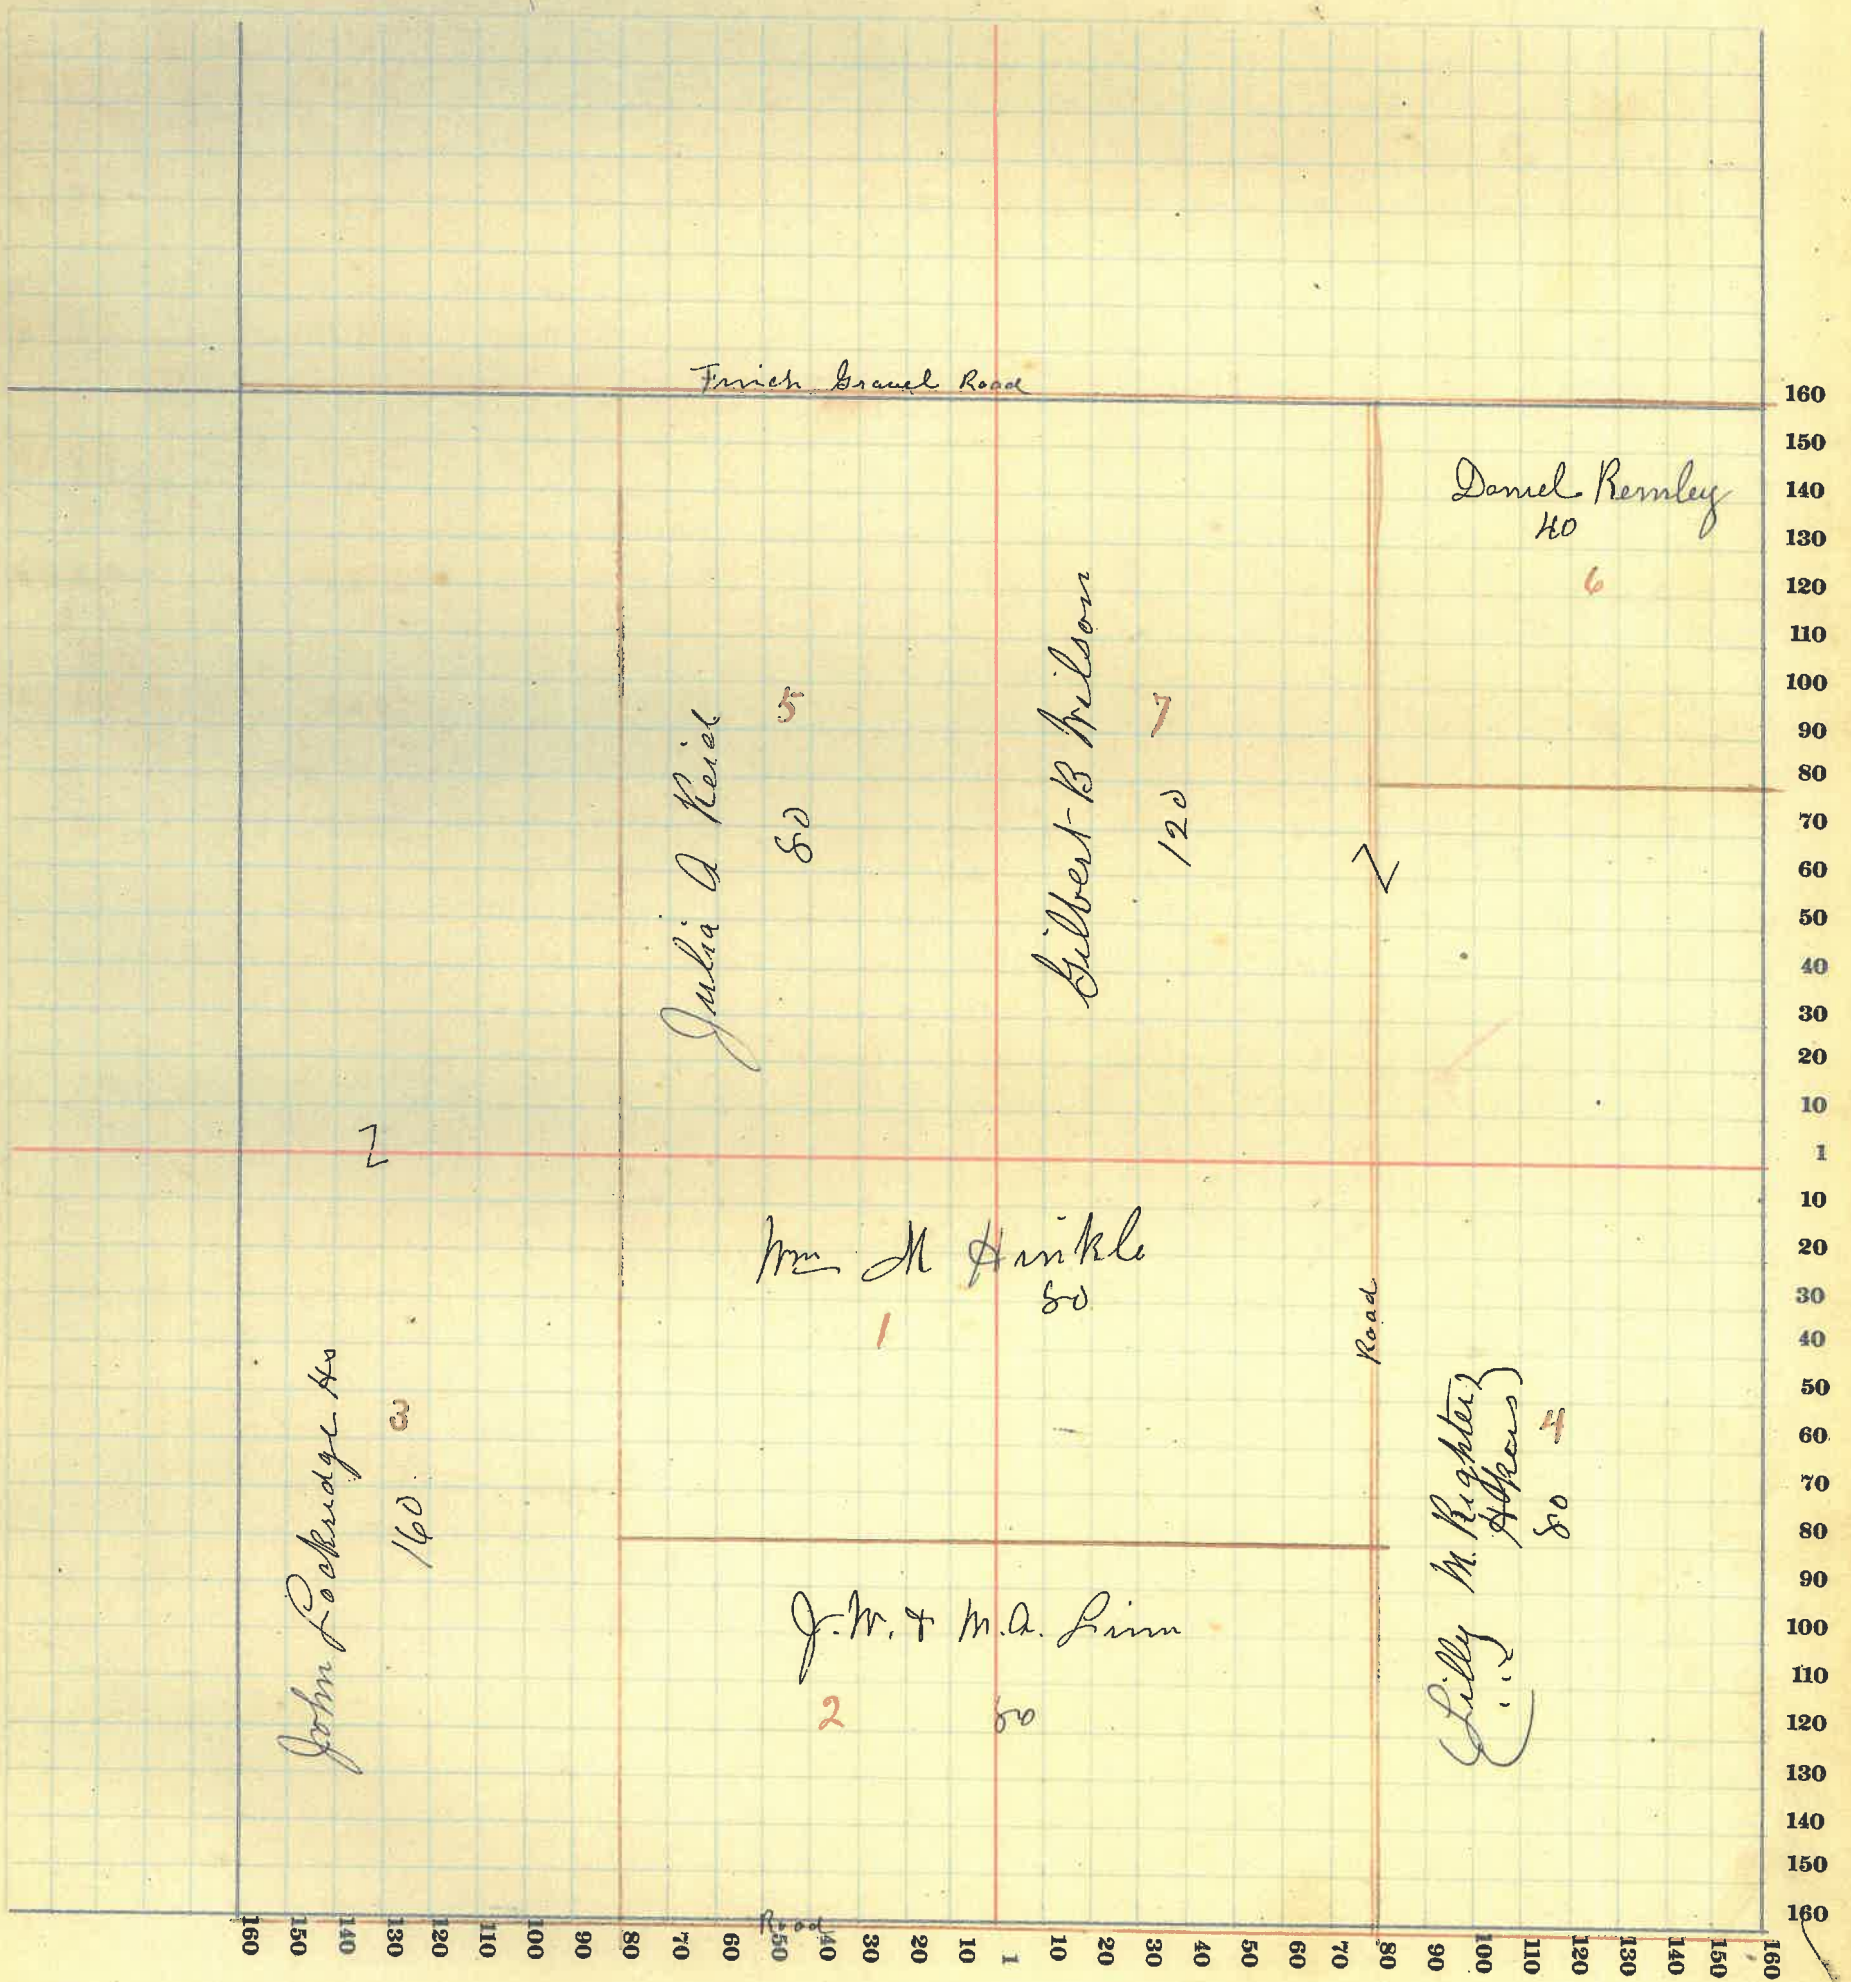 Finch Gravel Road
Daniel Remley
40
6
Julia A Reid
5
80
Gilbert B Wilson
7
120
Z
Z
Wm M Hinkle
80
1
Road
John Lockridge Hs
3
160
Lilly M. Righter
4
80
J. W. & M. A. Linn
2
80
Road
160
150
140
130
120
110
100
90
80
70
60
50
40
30
20
10
1
10
20
30
40
50
60
70
80
90
100
110
120
130
140
150
160
160 150 140 130 120 110 100 90 80 70 60 50 40 30 20 10 1 10 20 30 40 50 60 70 80 90 100 110 120 130 140 150 160